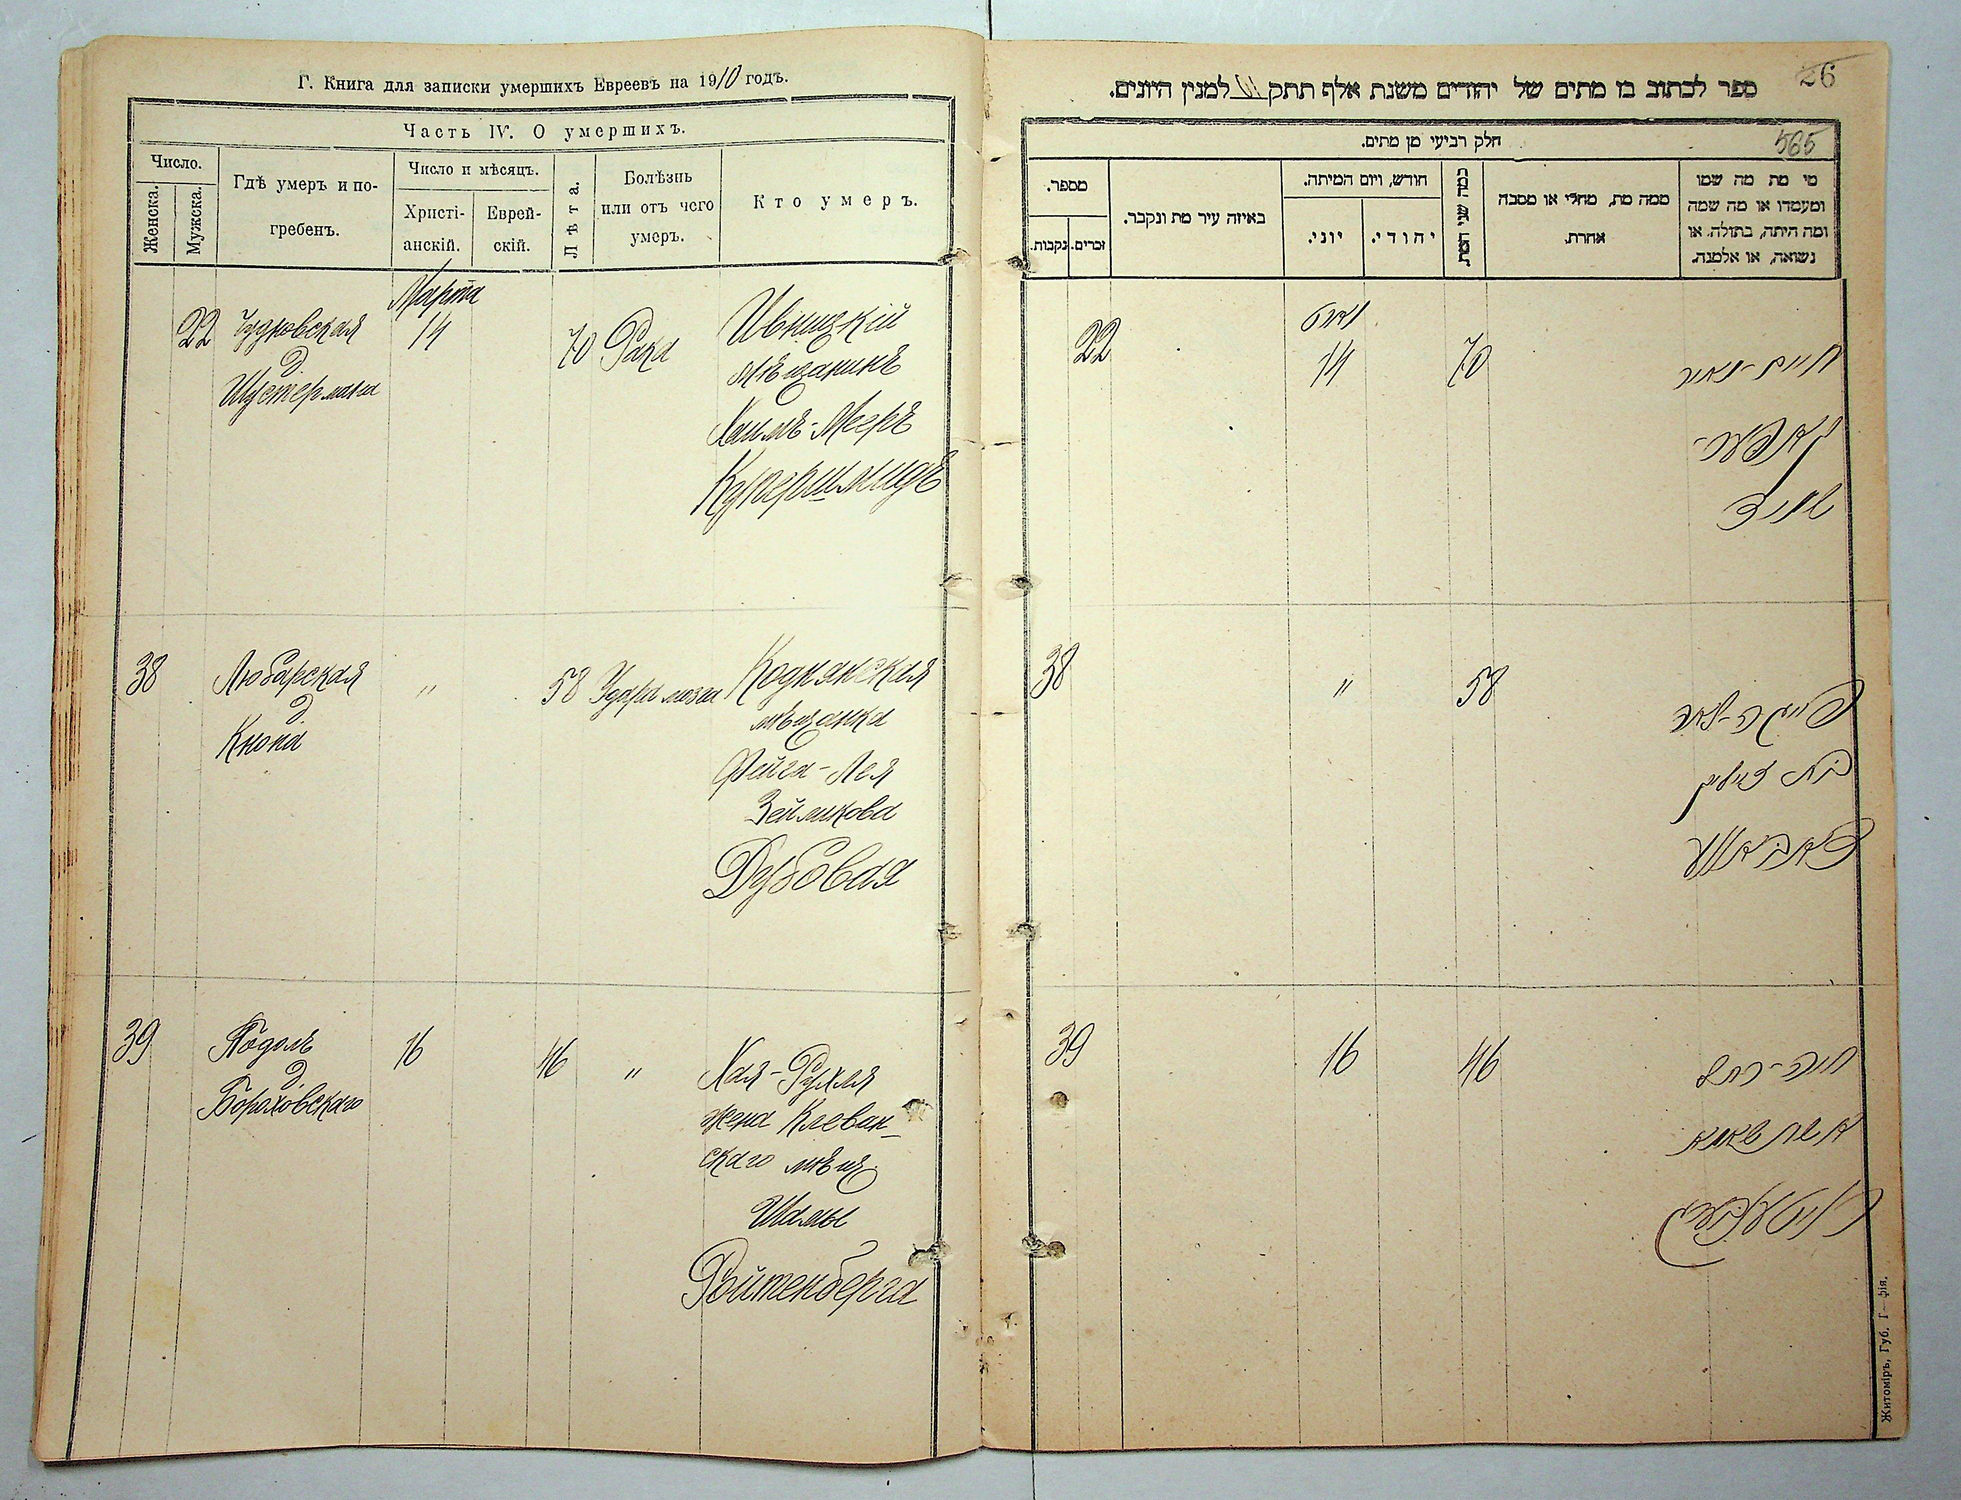 Г. Книга для записки умершихъ Евреевъ на 1910 годъ.
Часть IV. О умершихъ.
Число.
Женска.
Мужска.
Гдѣ умеръ и по-
гребенъ.
Число и мѣсяцъ.
Христі-
анскій.
Еврей-
скій.
Лѣта.
Болѣзнь
или отъ чего
умеръ.
Кто умеръ.
Марта
22
Чудновская
д
Шустермана
14
70
Рака
Ивницкій
мѣщанинъ
Хаимъ-Мееръ
Купершмидъ
38
Любарская
д
Кнопа
"
58
Удара мозга
Коднянская
мѣщанка
Фейга-Лея
Зейликова
Дубовая
39
Подолъ
д
Бороховскаго
16
46
"
Хая-Рухля
жена Клеван-
скаго мѣщ.
Шамы
Ройтенберга
26
ספר לכתוב בו מתים של יהודים משנת אלף תתק למנין היונים.
565
חלק רביעי מן מתים.
מספר.
נקבות.
זכרים.
באיזה עיר מת ונקבר.
חודש, ויום המיתה.
יוני.
יהודי.
כמה שני המת.
ממה מת, מחלי או מסבה
אחרת.
מי מת מה שמו
ומעמדו או מה שמה
ומה היתה, בתולה. או
נשואה, או אלמנה.
22
מארט
14
70
חיים-מאיר
קופער-
שמיד
38
"
58
פייגה-לאה
בת זייליק
39
16
46
חיה-רחל
אשת
רויטענבערג
Житоміръ, Губ. Т—фія.